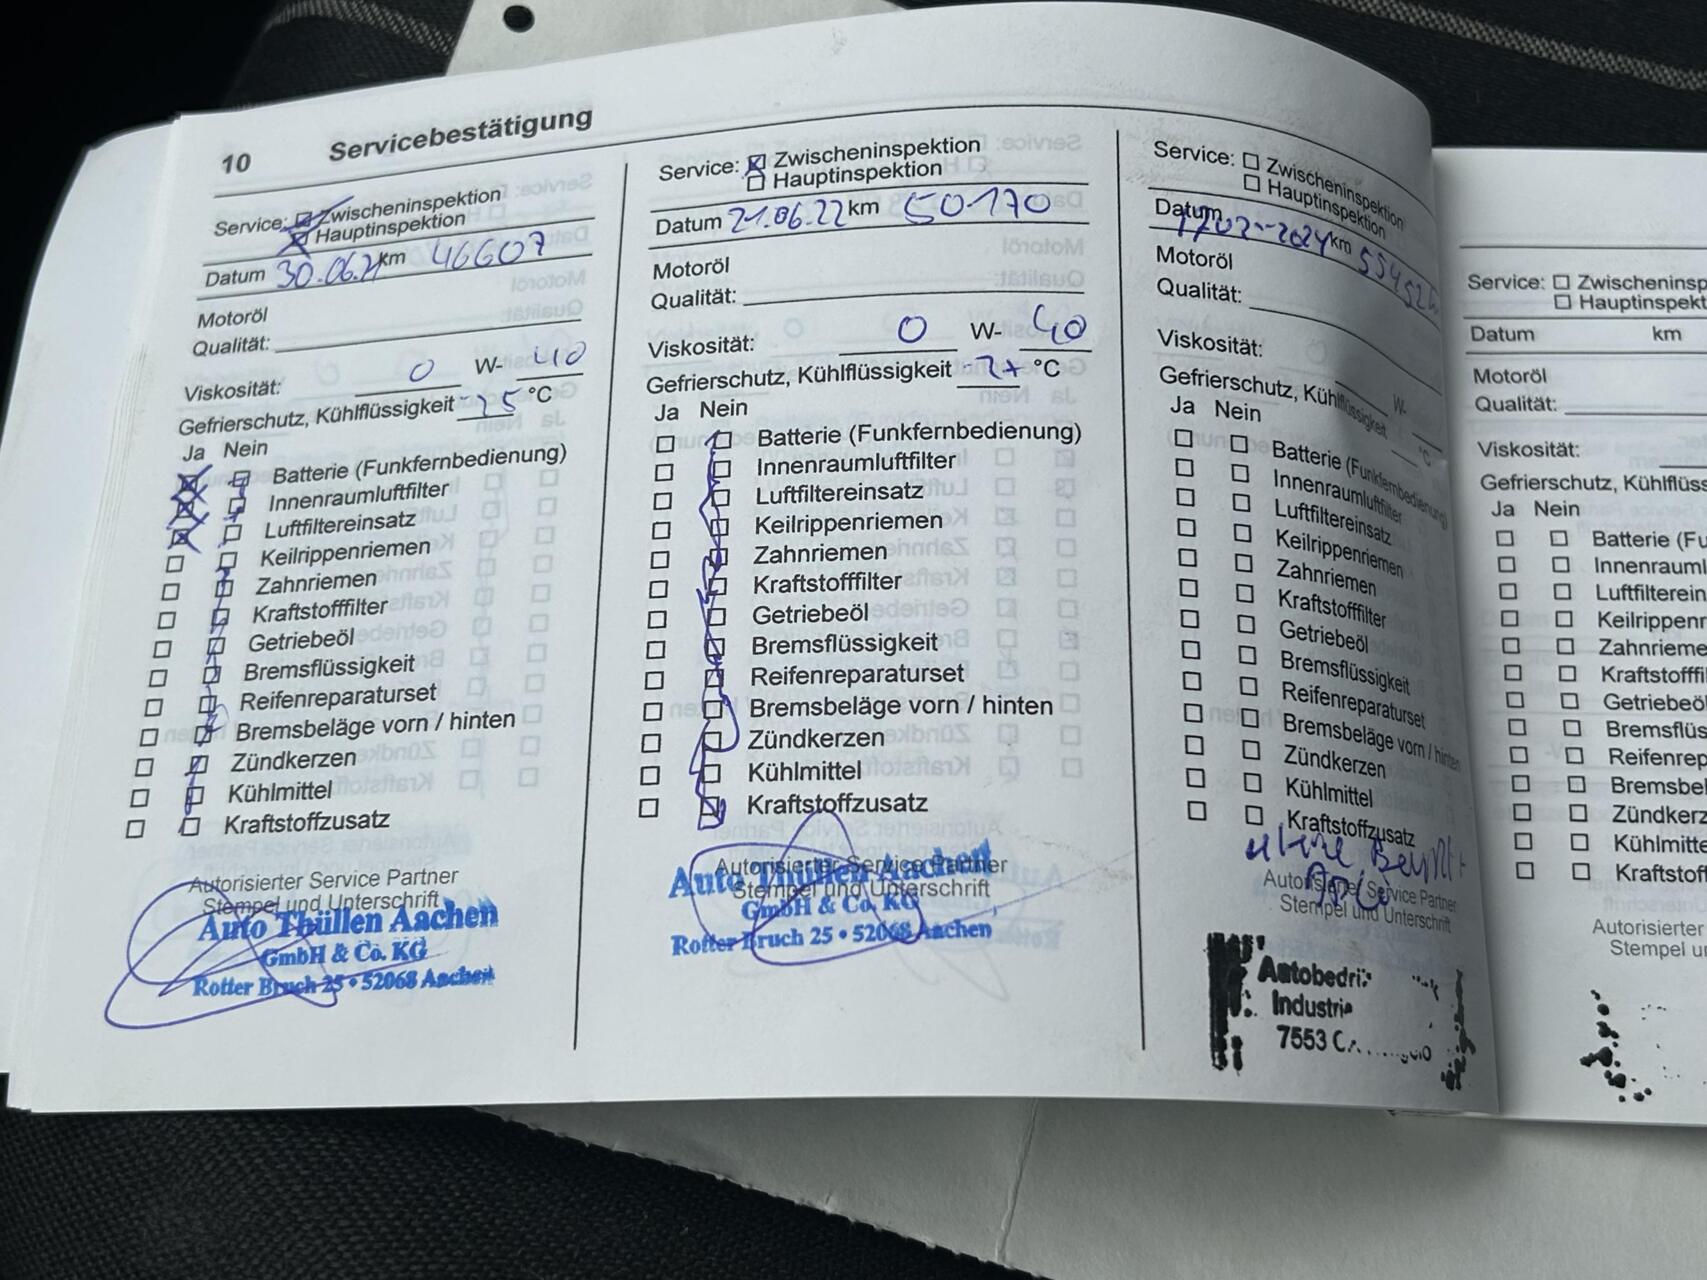 10 Servicebestätigung
Service: Zwischeninspektion
Hauptinspektion
Datum 30.06.21 km 46607
Motoröl
Qualität:
Viskosität: 0 W- 40
Gefrierschutz, Kühlflüssigkeit -25 °C
Ja Nein
Batterie (Funkfernbedienung)
Innenraumluftfilter
Luftfiltereinsatz
Keilrippenriemen
Zahnriemen
Kraftstofffilter
Getriebeöl
Bremsflüssigkeit
Reifenreparaturset
Bremsbeläge vorn / hinten
Zündkerzen
Kühlmittel
Kraftstoffzusatz
Autorisierter Service Partner
Stempel und Unterschrift
Auto Thüllen Aachen
GmbH & Co. KG
Rotter Bruch 25 • 52068 Aachen
Service: Zwischeninspektion
Hauptinspektion
Datum 21.06.22 km 50170
Motoröl
Qualität:
Viskosität: 0 W- 40
Gefrierschutz, Kühlflüssigkeit °C
Ja Nein
Batterie (Funkfernbedienung)
Innenraumluftfilter
Luftfiltereinsatz
Keilrippenriemen
Zahnriemen
Kraftstofffilter
Getriebeöl
Bremsflüssigkeit
Reifenreparaturset
Bremsbeläge vorn / hinten
Zündkerzen
Kühlmittel
Kraftstoffzusatz
Autorisierter Service Partner
Stempel und Unterschrift
Auto Thüllen Aachen
GmbH & Co. KG
Rotter Bruch 25 • 52068 Aachen
Service: Zwischeninspektion
Hauptinspektion
Datum km
Motoröl
Qualität:
Viskosität: W-
Gefrierschutz, Kühlflüssigkeit °C
Ja Nein
Batterie (Funkfernbedienung)
Innenraumluftfilter
Luftfiltereinsatz
Keilrippenriemen
Zahnriemen
Kraftstofffilter
Getriebeöl
Bremsflüssigkeit
Reifenreparaturset
Bremsbeläge vorn / hinten
Zündkerzen
Kühlmittel
Kraftstoffzusatz
Autorisierter Service Partner
Stempel und Unterschrift
7553
Service: Zwischeninsp
Hauptinspekt
Datum km
Motoröl
Qualität:
Viskosität:
Gefrierschutz, Kühlflüss
Ja Nein
Batterie (Fu
Innenrauml
Luftfilterein
Keilrippenr
Zahnrieme
Kraftstofffi
Getriebeö
Bremsflüs
Reifenrep
Bremsbel
Zündkerz
Kühlmitte
Kraftstof
Autorisierter
Stempel u